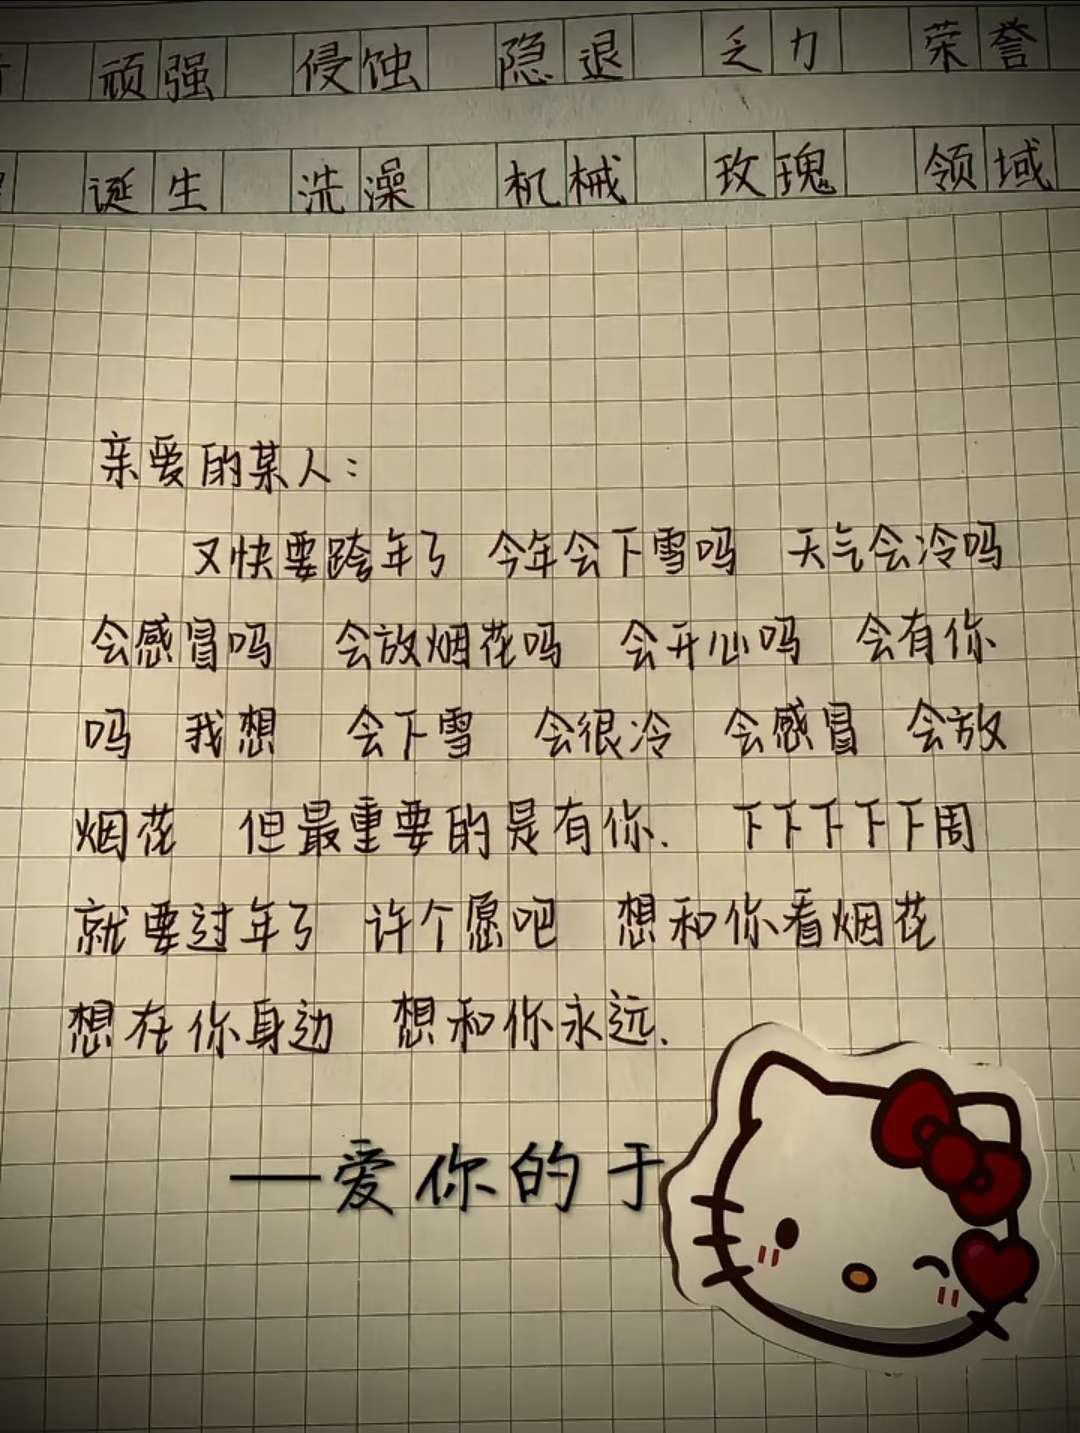 顽强 侵蚀 隐退 乏力 荣誉
诞生 洗澡 机械 玫瑰 领域
亲爱的某人:
又快要跨年了 今年会下雪吗 天气会冷吗
会感冒吗 会放烟花吗 会开心吗 会有你
吗 我想 会下雪 会很冷 会感冒 会放
烟花 但最重要的是有你. 下下下下下周
就要过年了 许个愿吧 想和你看烟花
想在你身边 想和你永远.
—爱你的于